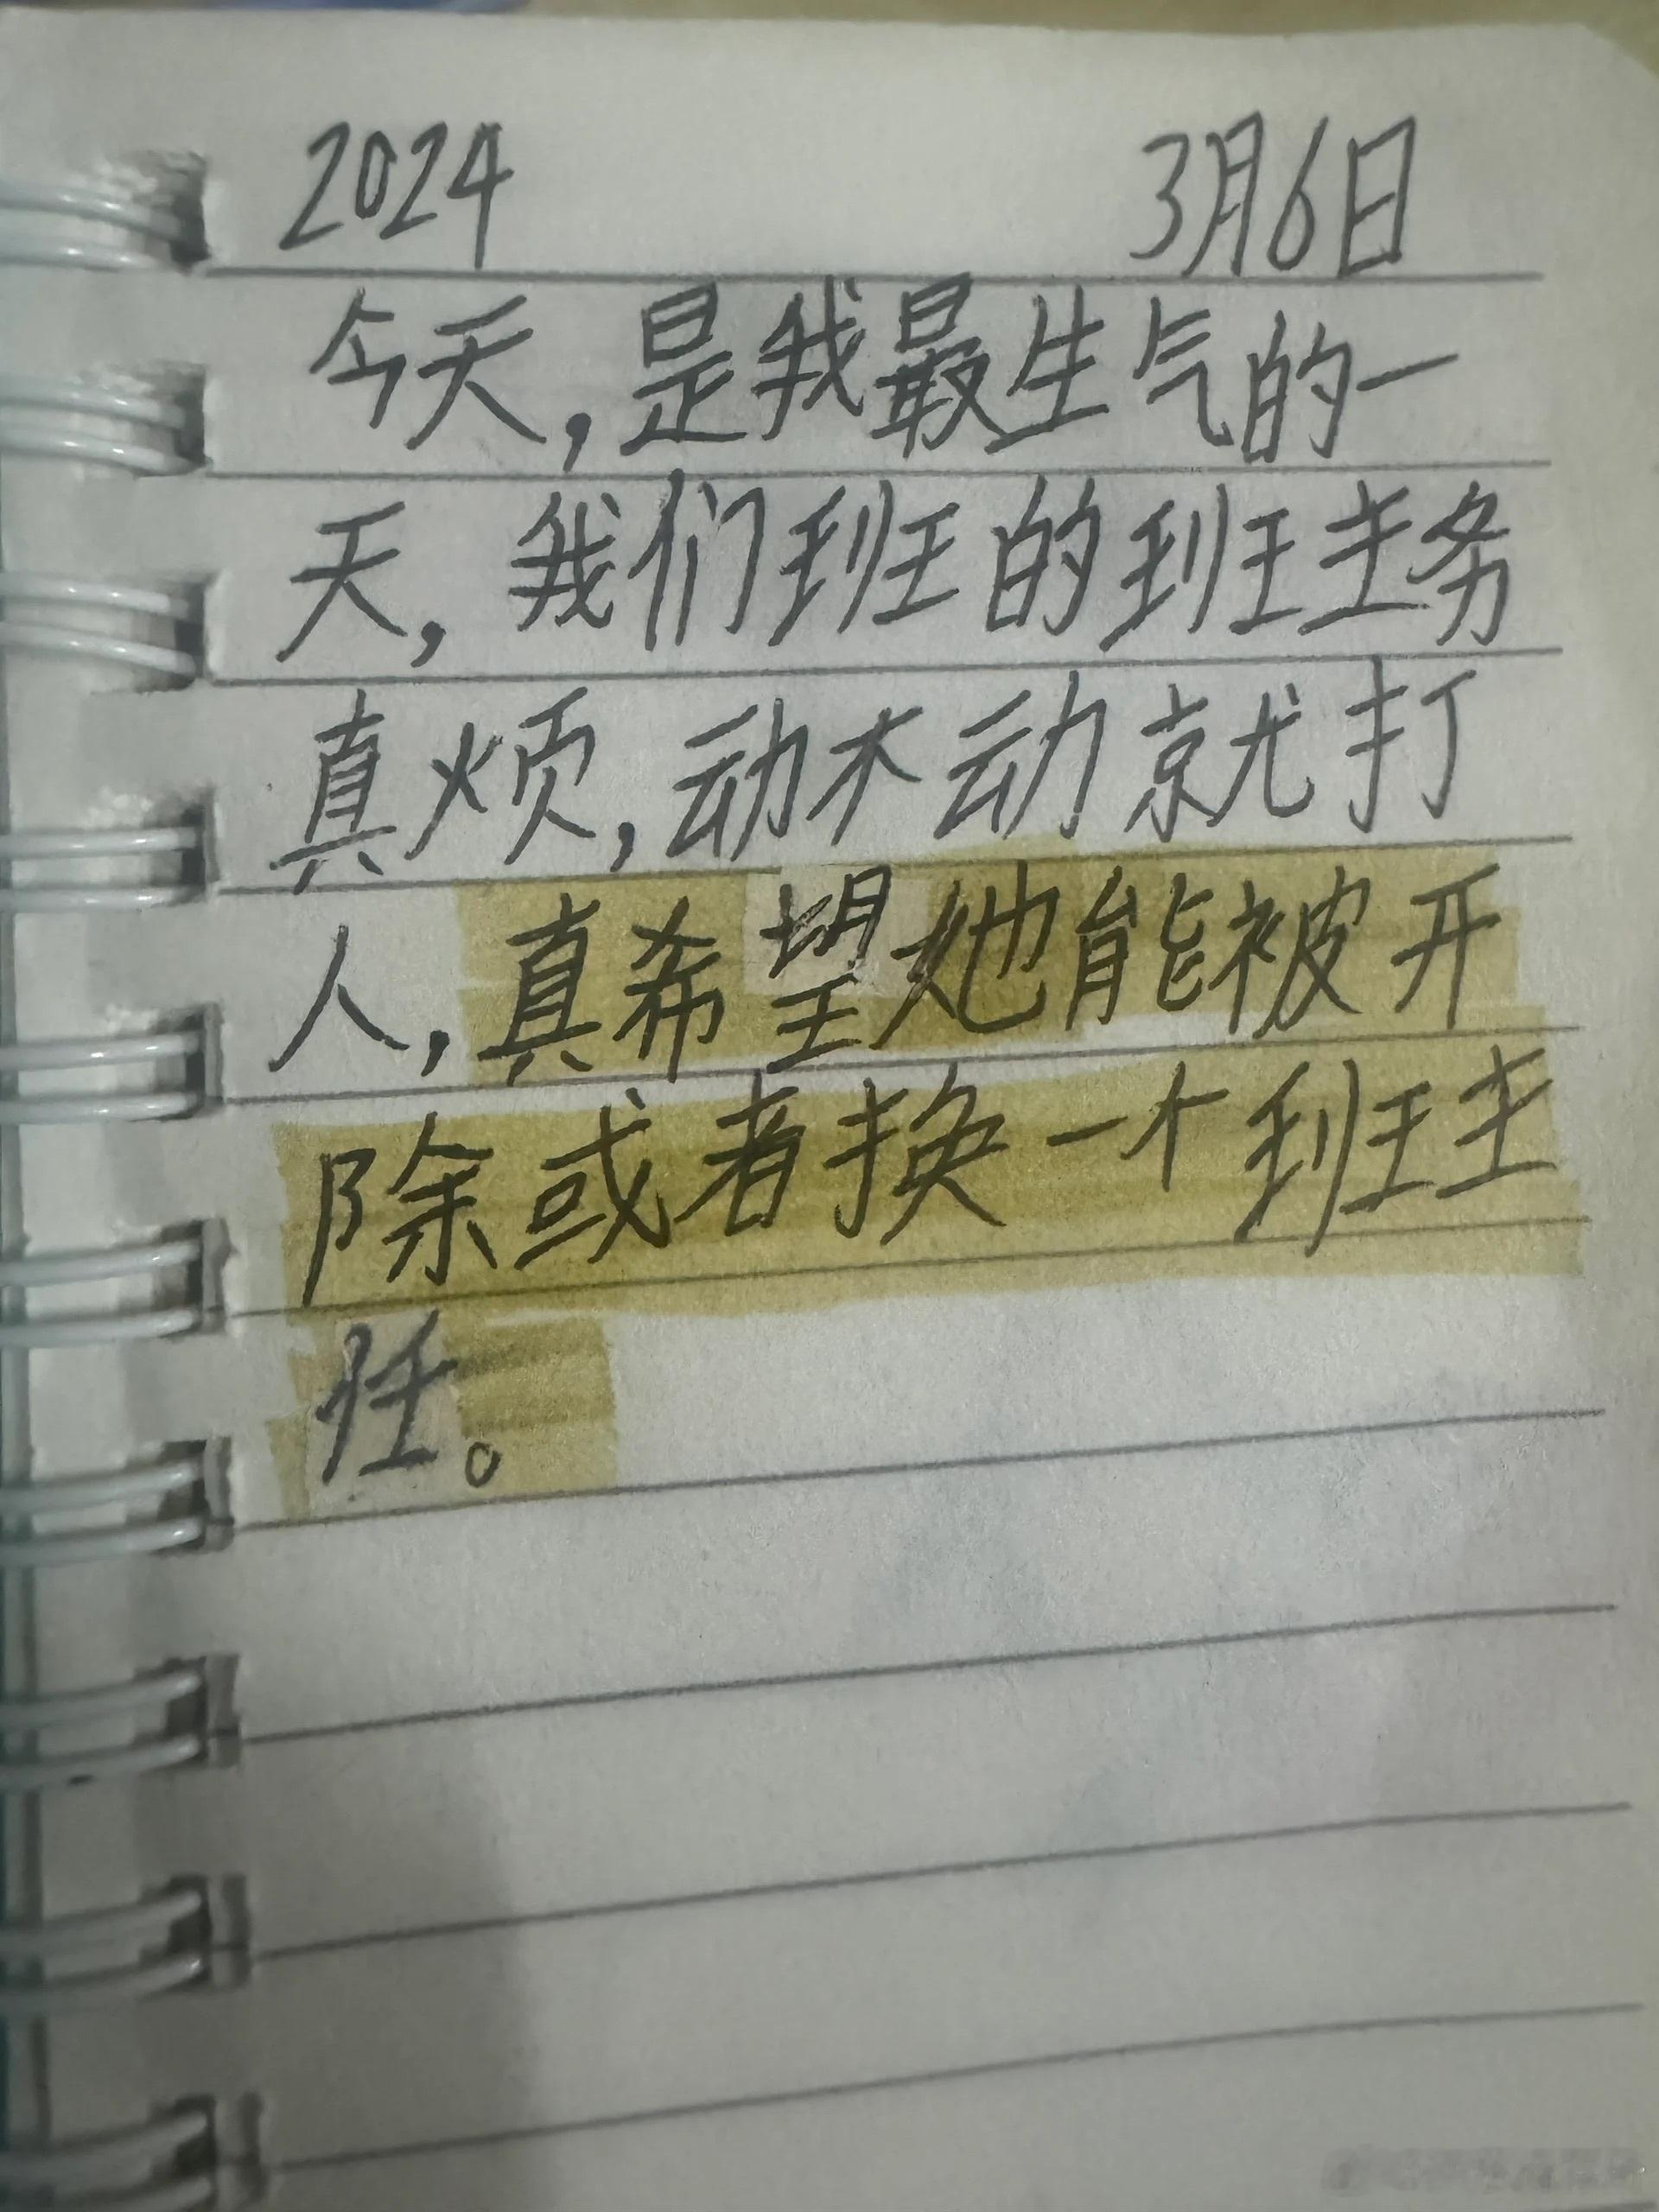 2024 3月6日
今天,是我最生气的一
天,我们班的班主务
真烦,动不动就打
人,真希望她能被开
除或者换一个班主
任。